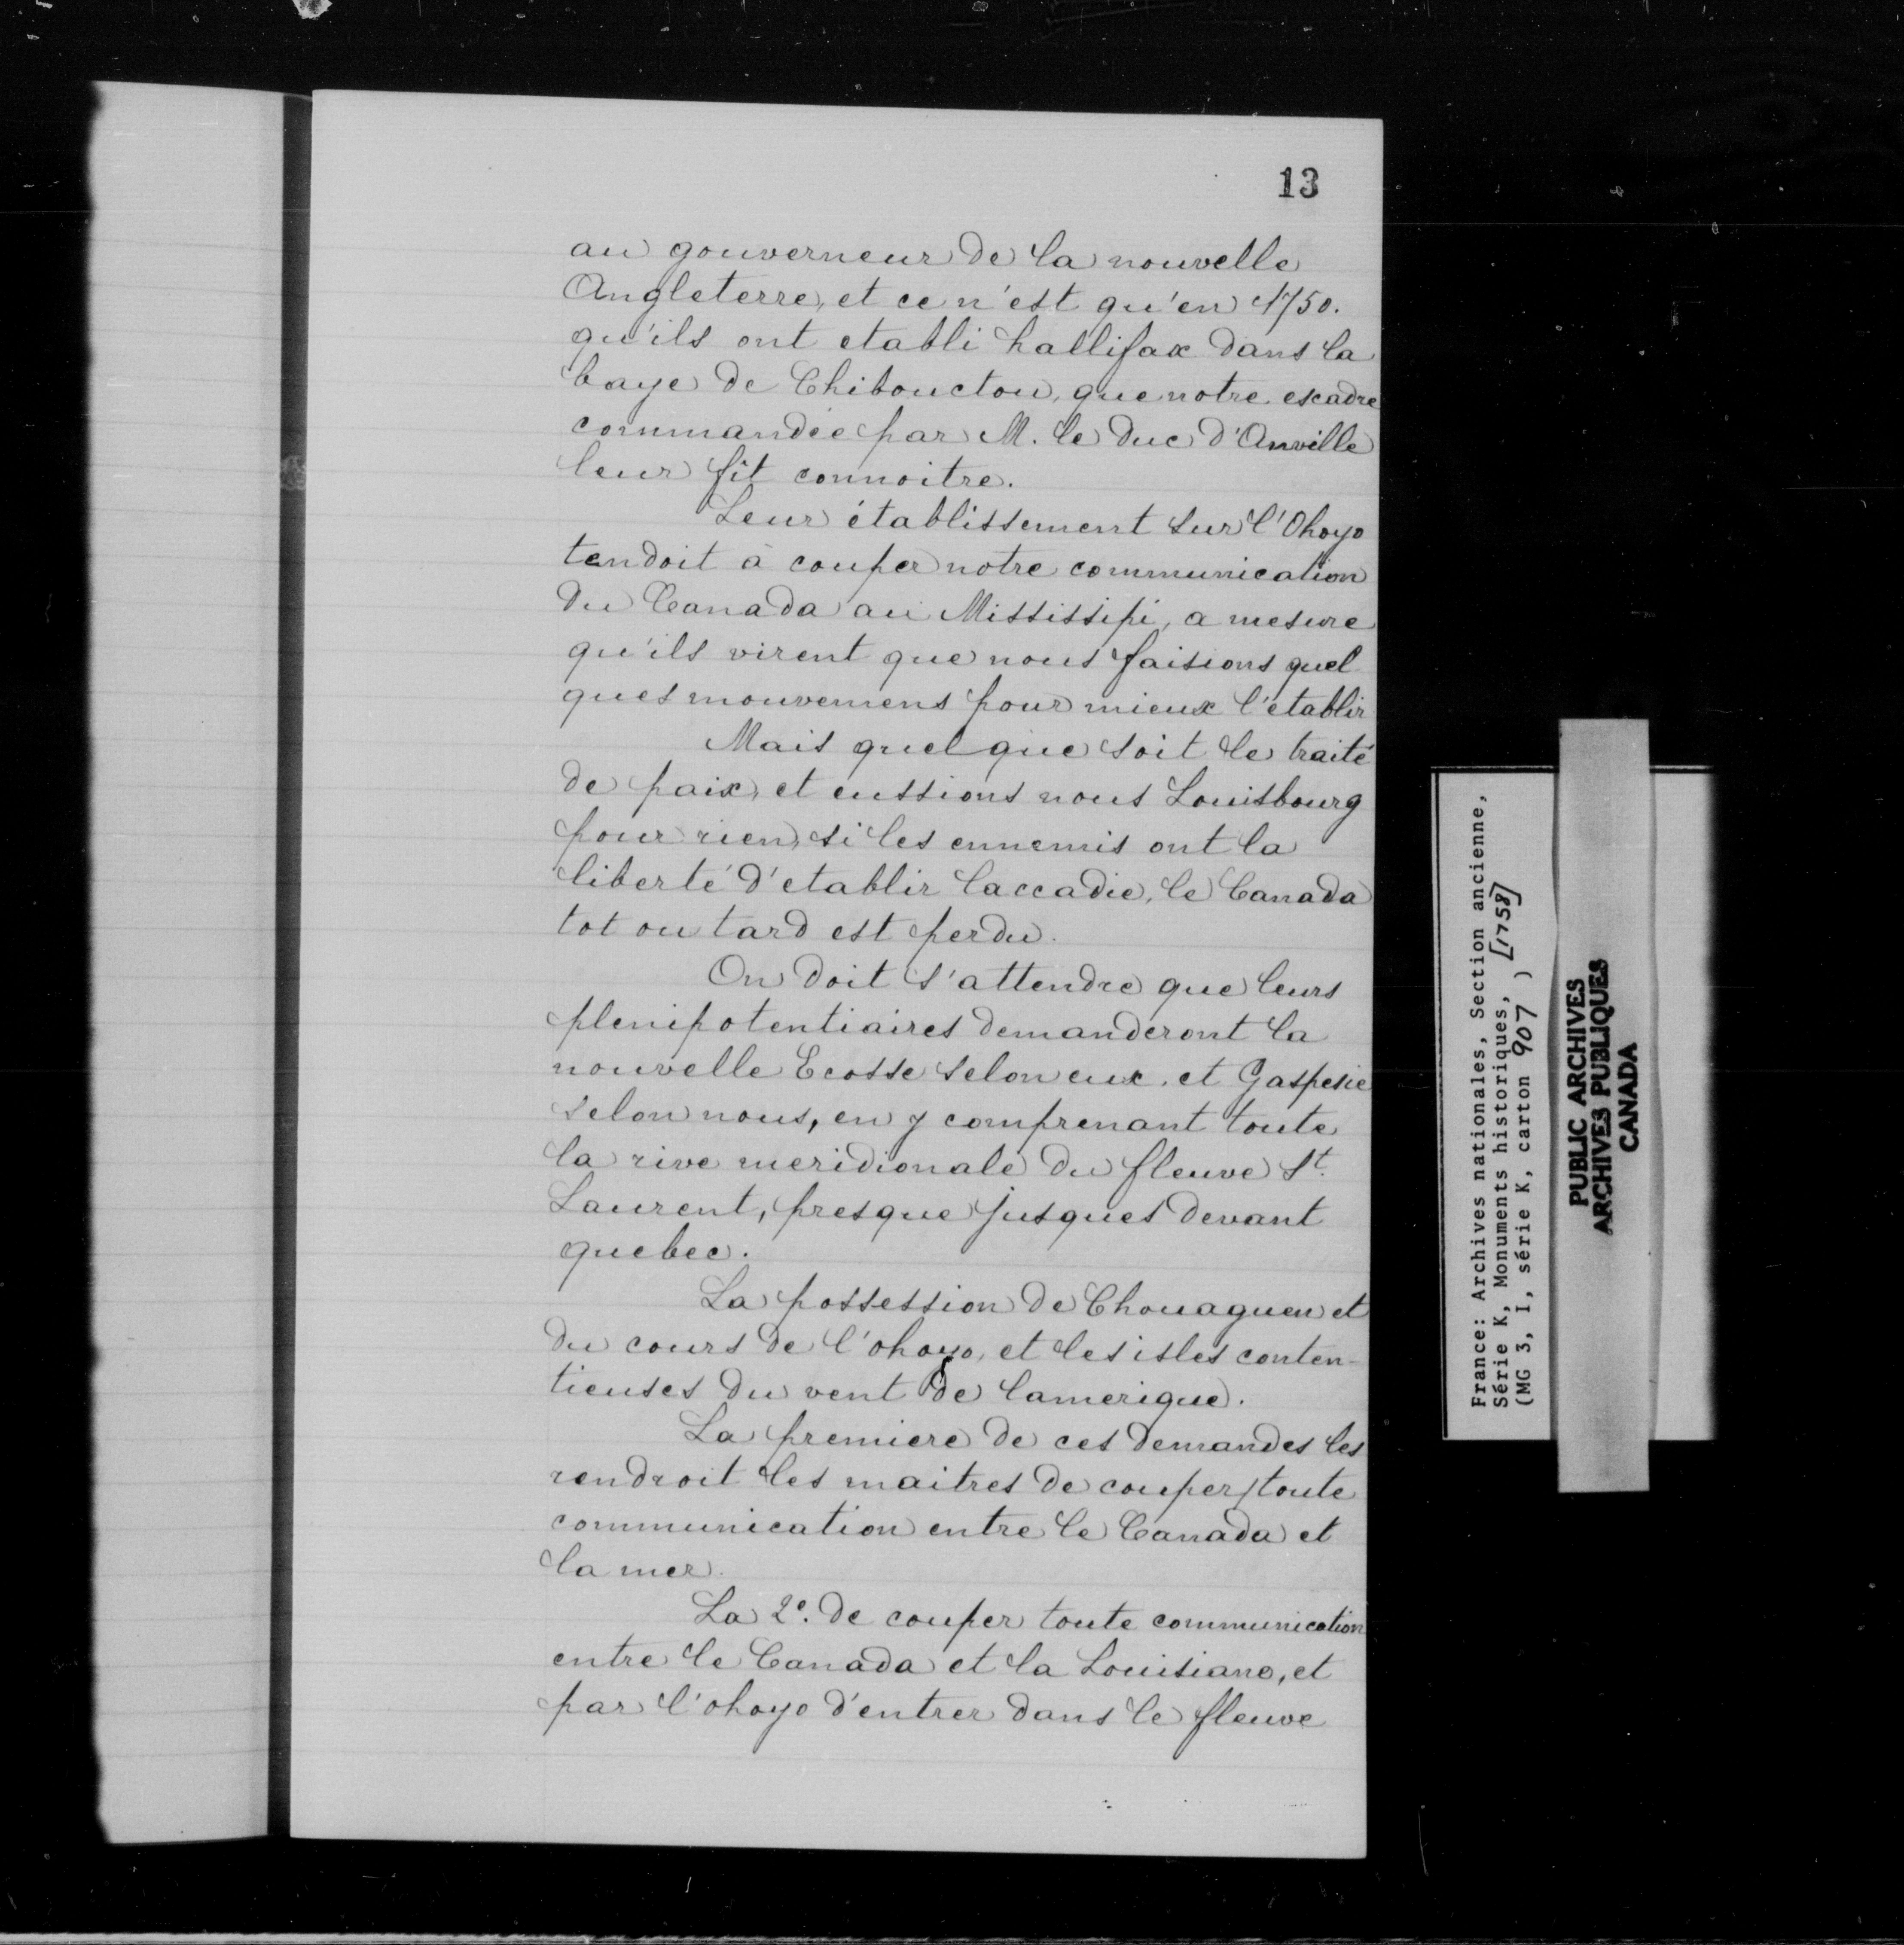 13
au gouverneur de la nouvelle
Angleterre, et ce n'est qu'en 1750.
qu'ils ont etabli hallifax dans la
baye de Chibouctou, que notre escadre
commandée par M. le duc d'Anville
leur fit connoitre.
Leur établissement sur l'Ohoyo
tendoit à couper notre communication
du Canada au Mississipi, a mesure
qu'ils virent que nous faisions quel
ques mouvemens pour mieux l'établir
Mais quelque soit le traité
de paix, et eussions nous Louisbourg
pour rien, si les ennemis ont la
liberté d'etablir laccadie, le Canada
tot ou tard est perdu.
On doit s'attendre que leurs
plenipotentiaires demanderont la
nouvelle Ecosse selon eux, et Gaspesie
selon nous, en y comprenant toute
la rive meridionale du fleuve St.
Laurent, presque jusques devant
quebec.
La possession de Chouaguen et
du cours de l'ohoyo, et les isles conten-
tieuses du vent de lamerique.
La premiere de ces demandes les
rendroit les maitres de couper toute
communication entre le Canada et
la mer.
La 2e. de couper toute communication
entre le Canada et la Louisiane, et
par l'ohoyo d'entrer dans le fleuve
France: Archives nationales, Section ancienne,
Série K, Monuments historiques, [1758]
(MG 3, I, série K, carton 907 )
PUBLIC ARCHIVES
ARCHIVES PUBLIQUES
CANADA